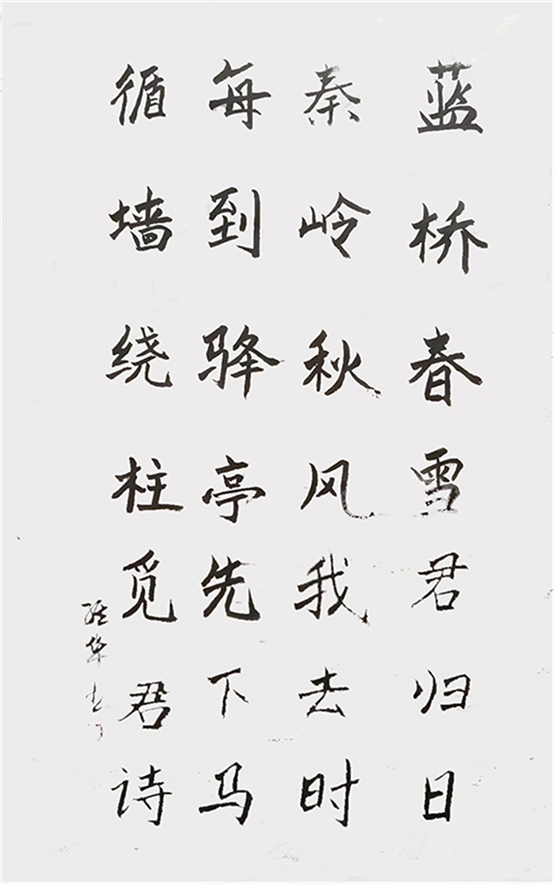 蓝桥春雪君归日
秦岭秋风我去时
每到驿亭先下马
循墙绕柱觅君诗